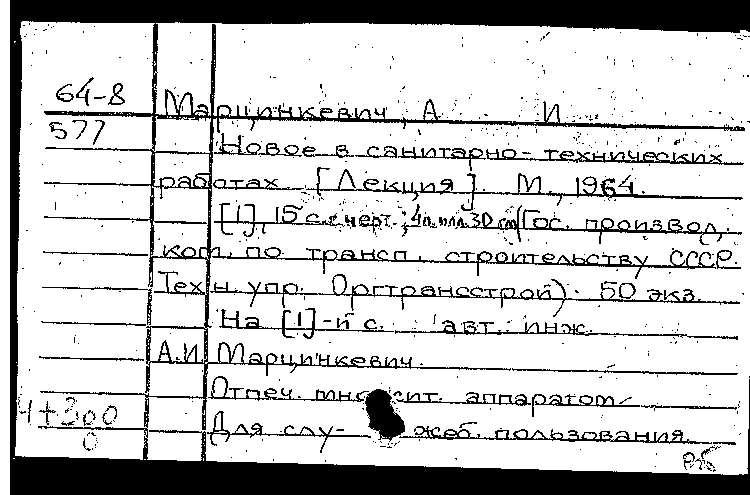 64-8
Марцинкевич, А И
577
Новое в санитарно-технических
работах [Лекция]. М., 1964.
[1], 15 с. с черт.; 4 л. илл. 30 см (Гос. производ.
ком. по трансп. строительству СССР.
Техн. упр. Оргтрансстрой). 50 экз.
На [1]-й с. авт.: инж.
А.И. Марцинкевич.
Отпеч. множит. аппаратом
Для слу- жеб. пользования
4+300
0